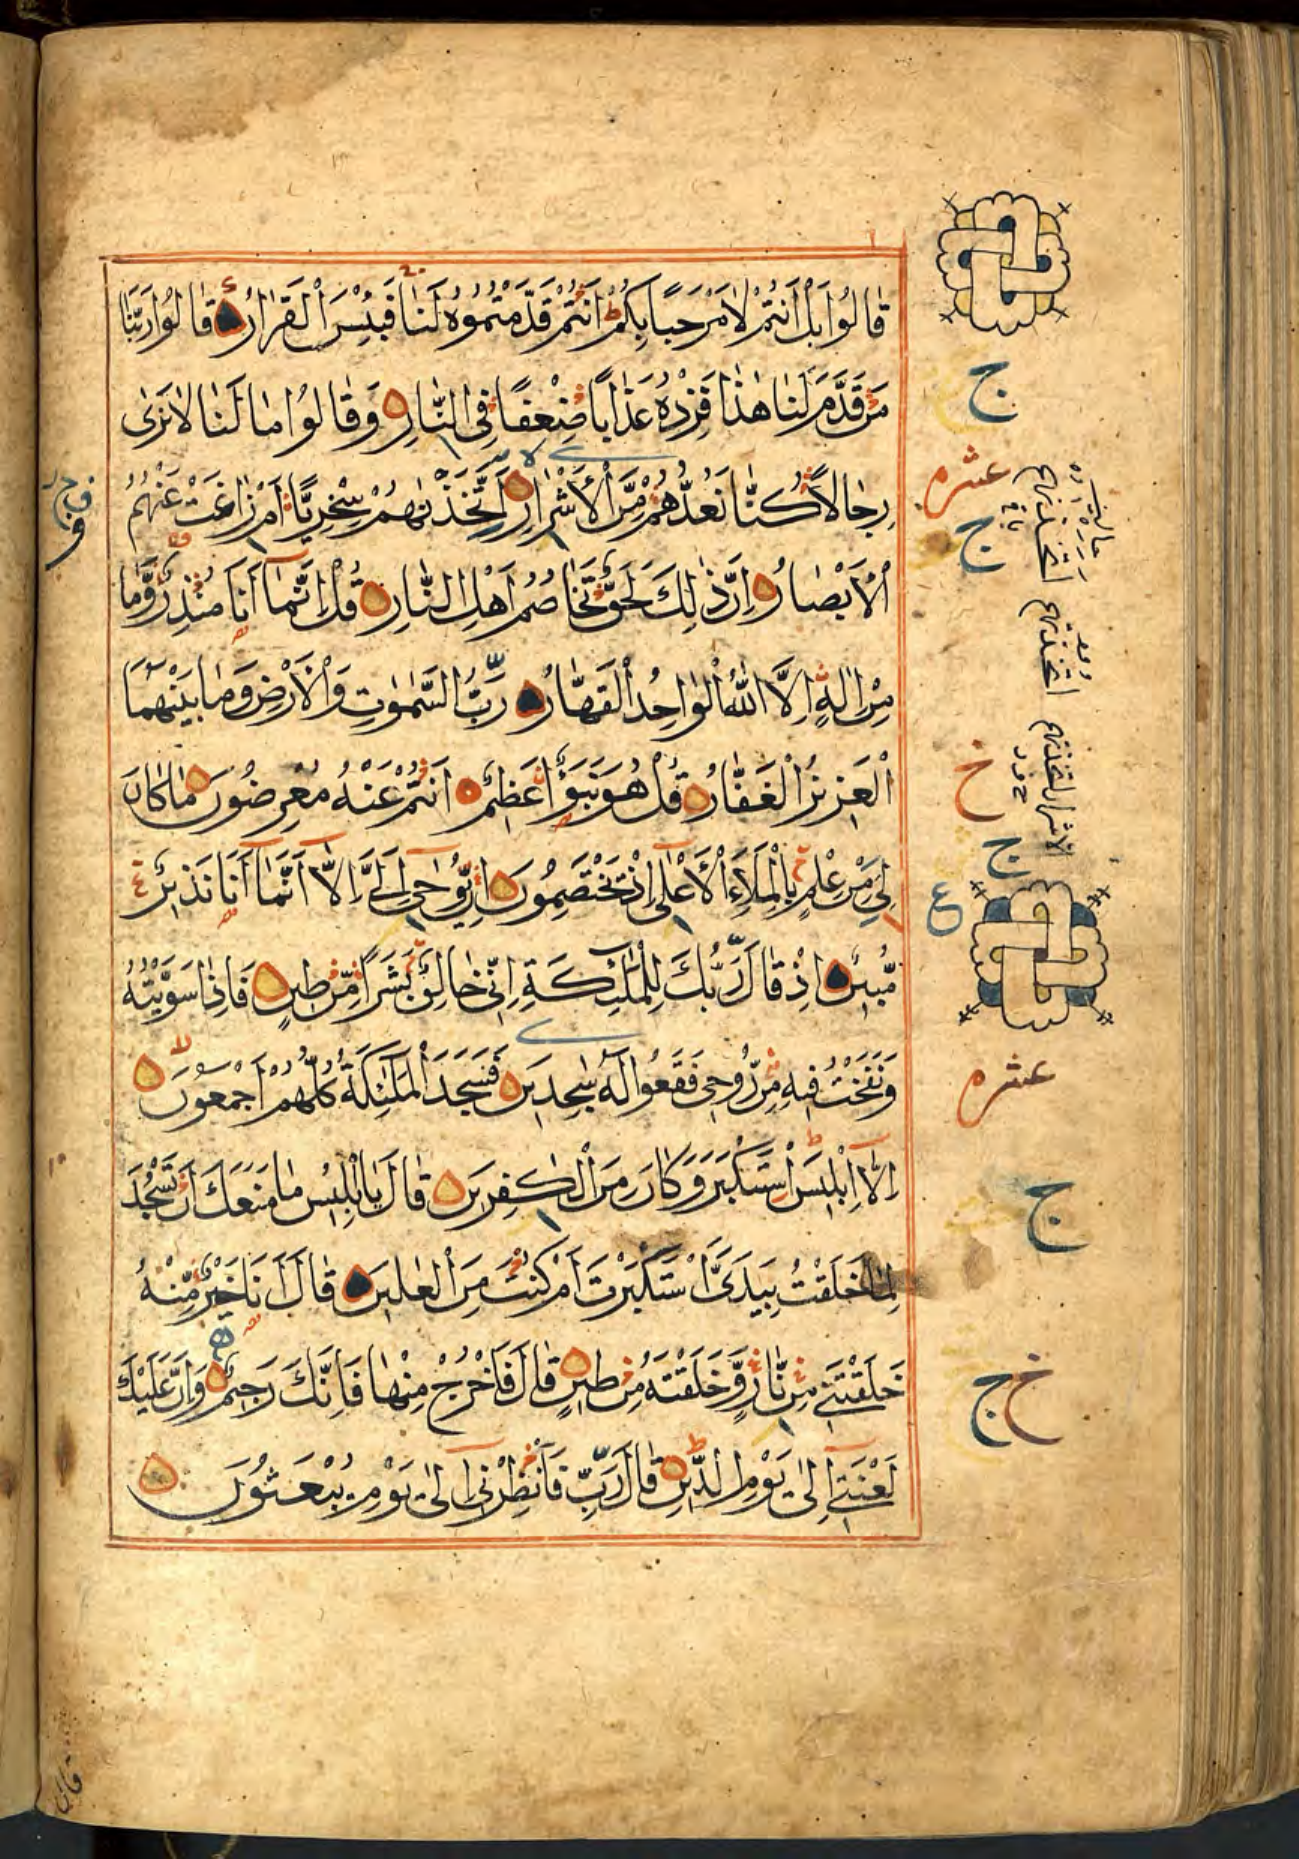 قَالُوا بَلْ أَنْتُمْ لَا مَرْحَبًا بِكُمْ أَنْتُمْ قَدَّمْتُمُوهُ لَنَا فَبِئْسَ الْقَرَارُ قَالُوا رَبَّنَا
مَنْ قَدَّمَ لَنَا هٰذَا فَزِدْهُ عَذَابًا ضِعْفًا فِي النَّارِ وَقَالُوا مَا لَنَا لَا نَرٰى
رِجَالًا كُنَّا نَعُدُّهُمْ مِّنَ الْأَشْرَارِ أَتَّخَذْنٰهُمْ سِخْرِيًّا أَمْ زَاغَتْ عَنْهُمُ
الْأَبْصَارُ إِنَّ ذٰلِكَ لَحَقٌّ تَخَاصُمُ أَهْلِ النَّارِ قُلْ إِنَّمَا أَنَا مُنْذِرٌ وَّمَا
مِنْ إِلٰهٍ إِلَّا اللّٰهُ الْوَاحِدُ الْقَهَّارُ رَبُّ السَّمٰوٰتِ وَالْأَرْضِ وَمَا بَيْنَهُمَا
الْعَزِيزُ الْغَفَّارُ قُلْ هُوَ نَبَؤٌا عَظِيمٌ أَنْتُمْ عَنْهُ مُعْرِضُونَ مَا كَانَ
لِيَ مِنْ عِلْمٍ بِالْمَلَإِ الْأَعْلٰى إِذْ يَخْتَصِمُونَ إِنْ يُّوحٰى إِلَيَّ إِلَّا أَنَّمَا أَنَا نَذِيرٌ
مُّبِينٌ إِذْ قَالَ رَبُّكَ لِلْمَلٰئِكَةِ إِنِّي خَالِقٌ بَشَرًا مِّنْ طِينٍ فَإِذَا سَوَّيْتُهُ
وَنَفَخْتُ فِيهِ مِنْ رُّوحِي فَقَعُوا لَهُ سٰجِدِينَ فَسَجَدَ الْمَلٰئِكَةُ كُلُّهُمْ أَجْمَعُونَ
إِلَّا إِبْلِيسَ اسْتَكْبَرَ وَكَانَ مِنَ الْكٰفِرِينَ قَالَ يَا إِبْلِيسُ مَا مَنَعَكَ أَنْ تَسْجُدَ
لِمَا خَلَقْتُ بِيَدَيَّ أَسْتَكْبَرْتَ أَمْ كُنْتَ مِنَ الْعٰلِينَ قَالَ أَنَا خَيْرٌ مِّنْهُ
خَلَقْتَنِي مِنْ نَّارٍ وَّخَلَقْتَهُ مِنْ طِينٍ قَالَ فَاخْرُجْ مِنْهَا فَإِنَّكَ رَجِيمٌ وَإِنَّ عَلَيْكَ
لَعْنَتِي إِلٰى يَوْمِ الدِّينِ قَالَ رَبِّ فَأَنْظِرْنِي إِلٰى يَوْمِ يُبْعَثُونَ
ج
عشره
ج
خ
ج
ع
عشره
ج
خ ج
قال